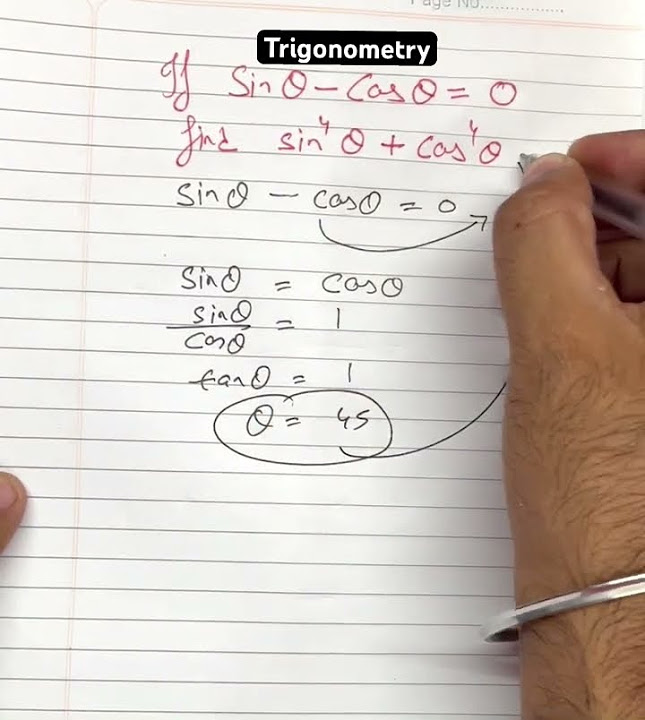 Page No.................
Trigonometry
If Sinθ - Cosθ = 0
find sin⁴θ + cos⁴θ
sinθ - cosθ = 0
Sinθ = cosθ
sinθ/cosθ = 1
tanθ = 1
θ = 45